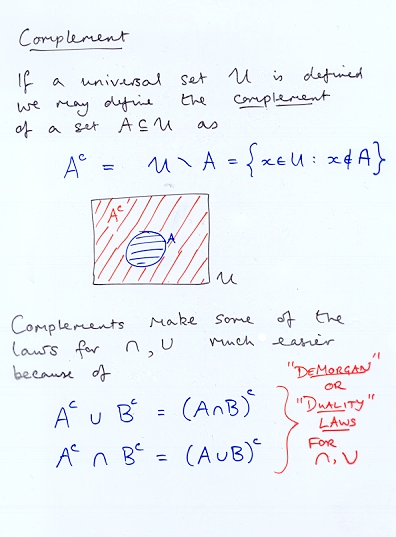 Complement
If a universal set U is defined
we may define the complement
of a set A⊆U as
Aᶜ = U \ A = {x∈U : x∉A}
Aᶜ
A
U
Complements make some of the
laws for ∩, ∪ much easier
because of
Aᶜ ∪ Bᶜ = (A∩B)ᶜ
Aᶜ ∩ Bᶜ = (A∪B)ᶜ
"DEMORGAN"
OR
"DUALITY"
LAWS
FOR
∩, ∪